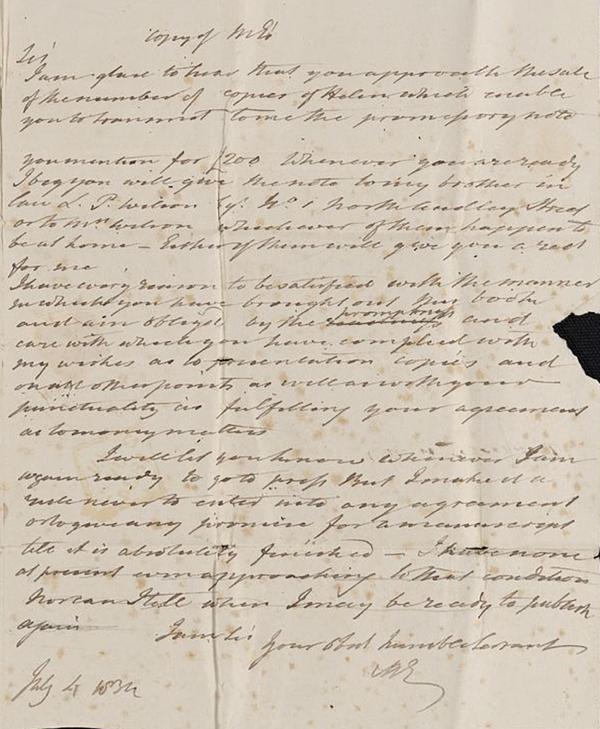 copy of ME's
Sir
I am glad to hear that you approve the sale
of the number of copies of Helen which enable
you to transmit to me the promissory note
you mention for £200 Whenever you are ready
I beg you will give the note to my brother in
law L. P. Wilson Esq. No. 1 North Audley Street
or to Mrs Wilson whichever of them happen to
be at home – Either of them will give you a rect
for me
I have every reason to be satisfied with the manner
in which you have brought out my book
and am obliged by the promptness and
care with which you have complied with
my wishes as to presentation copies and
on all other points as well as with your
punctuality in fulfilling your agreement
as to money matters
I will let you know whenever I am
again ready to go to press But I make it a
rule never to enter into any agreement
or to give any promise for a manuscript
till it is absolutely finished – I have none
at present even approaching to that condition
Nor can I tell when I may be ready to publish
again
I am Sir
Your Obdt humble Servant
ME
July 4 1834